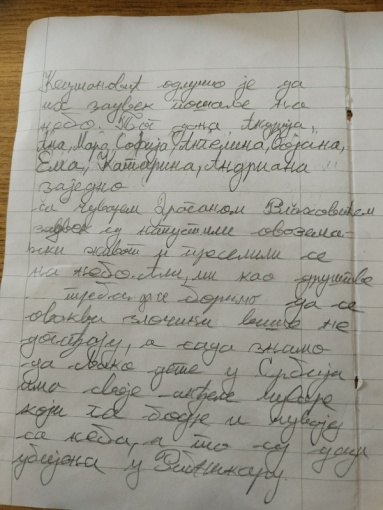 Кецмановић одлучио је да
их заувек пошаље на
небо. Тог дана Андрија,
Ана, Мара, Софија, Ангелина, Бојана,
Ема, Катарина, Адриана
заједно
са чуварем Драганом Влаховићем
заувек су напустили овозема-
љски живот и преселили се
на небо. Али, ми као друштво
треба да се боримо да се
овакви злочини више не
догађају, а сада знамо
да свако дете у Србији
има своје анђеле чуваре
који га воде и чувају
са неба, а то су деца
убијена у Рибникару.